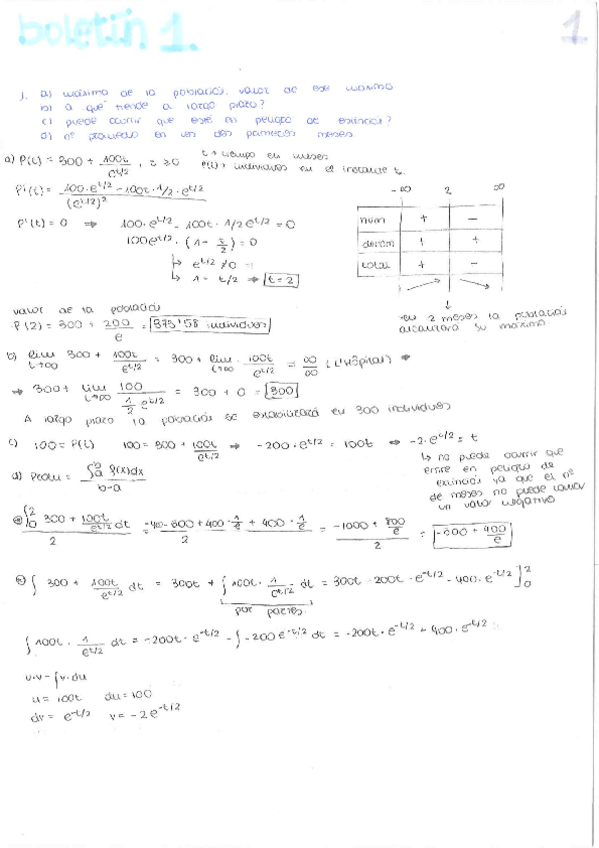 boletín 1.
1
1. a) máximo de la población. valor de ese máximo
b) a qué tiende a largo plazo?
c) puede ocurrir que esté en peligro de extinción?
d) nº promedio en los dos primeros meses.
a) P(t) = 300 + 100t/e^{t/2}, t ≥ 0
t → tiempo en meses
P(t) → individuos en el instante t.
P'(t) = (100·e^{t/2} - 100t·1/2·e^{t/2})/(e^{t/2})^2
P'(t) = 0 ⇒ 100·e^{t/2} - 100t·1/2 e^{t/2} = 0
100e^{t/2}·(1 - t/2) = 0
↳ e^{t/2} ≠ 0
↳ 1 - t/2 → t = 2
-∞ 2 ∞
num + -
denom + +
total + -
en 2 meses la población
alcanzará su máximo
valor de la población
P(2) = 300 + 200/e = 373'58 individuos
b) lim t→∞ 300 + 100t/e^{t/2} = 300 + lim t→∞ 100t/e^{t/2} = ∞/∞ (L'Hôpital) ⇒
⇒ 300 + lim t→∞ 100/(1/2 e^{t/2}) = 300 + 0 = 300
A largo plazo la población se estabilizará en 300 individuos
c) 100 = P(t) 100 = 300 + 100t/e^{t/2} ⇒ -200·e^{t/2} = 100t ⇒ -2·e^{t/2} = t
↳ no puede ocurrir que
esté en peligro de
extinción ya que el nº
de meses no puede tomar
un valor negativo
d) Pedm = ∫_a^b f(x)dx/b-a
∫_0^2 300 + 100t/e^{t/2} dt/2 = = -1000 + 800/e/2 =
∫ 300 + 100t/e^{t/2} dt = 300t + ∫ 100t · 1/e^{t/2} · dt = 300t - 200t·e^{-t/2} - 400·e^{-t/2}]_0^2
por partes.
∫ 100t · 1/e^{t/2} dt = -200t·e^{-t/2} - ∫ -200e^{-t/2} dt = -200t·e^{-t/2} - 400·e^{-t/2}
u·v - ∫v·du
u = 100t du = 100
dv = e^{-t/2} v = -2e^{-t/2}